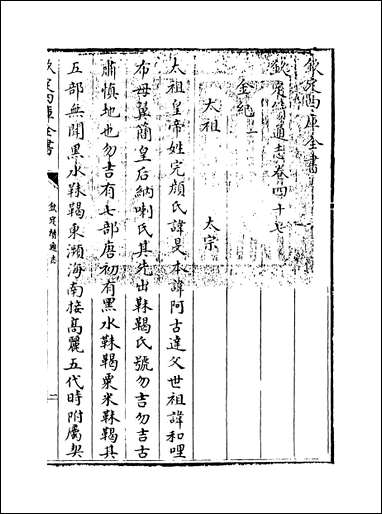 欽定四庫全書
欽定續通志卷四十七
金紀一
太祖 太宗
太祖皇帝姓完顔氏諱旻本諱阿古達父世祖諱和哩
布母翼簡皇后納喇氏其先出靺鞨氏號勿吉勿吉古
肅慎地也勿吉有七部唐初有黑水靺鞨粟末靺鞨其
五部無聞黑水靺鞨東瀕海南接高麗五代時附屬契
欽定四庫全書
欽定續通志